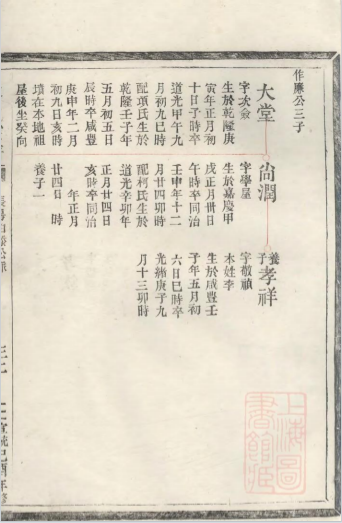 作廉公三子
大堂
字次
生於乾隆庚
寅年正月初
十日子時卒
道光甲午九
月初九巳時
配項氏生於
乾隆壬子年
五月初五日
辰時卒咸豐
庚申年二月
初九日亥時
墳在本地祖
屋後坐癸向
尚潤
字學屋
生於嘉慶甲
戌正月卅日
午時卒同治
壬申年十二
月廿四卯時
配柯氏生於
道光辛卯年
正月廿四日
亥時卒同治
年正月
廿四日 時
養子一
養子孝祥
字敬禎
本姓李
生於咸豐壬
子年五月初
六日巳時卒
光緒庚子九
月十三卯時
宣統己酉年
上海圖書館